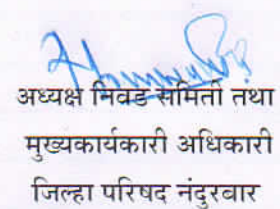 अध्यक्ष निवड समिती तथा
मुख्यकार्यकारी अधिकारी
जिल्हा परिषद नंदुरबार